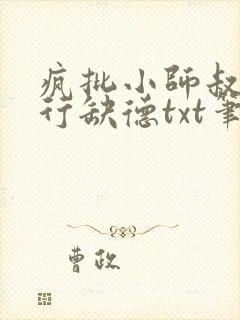 疯批小师叔
行缺德txt笔
曹政